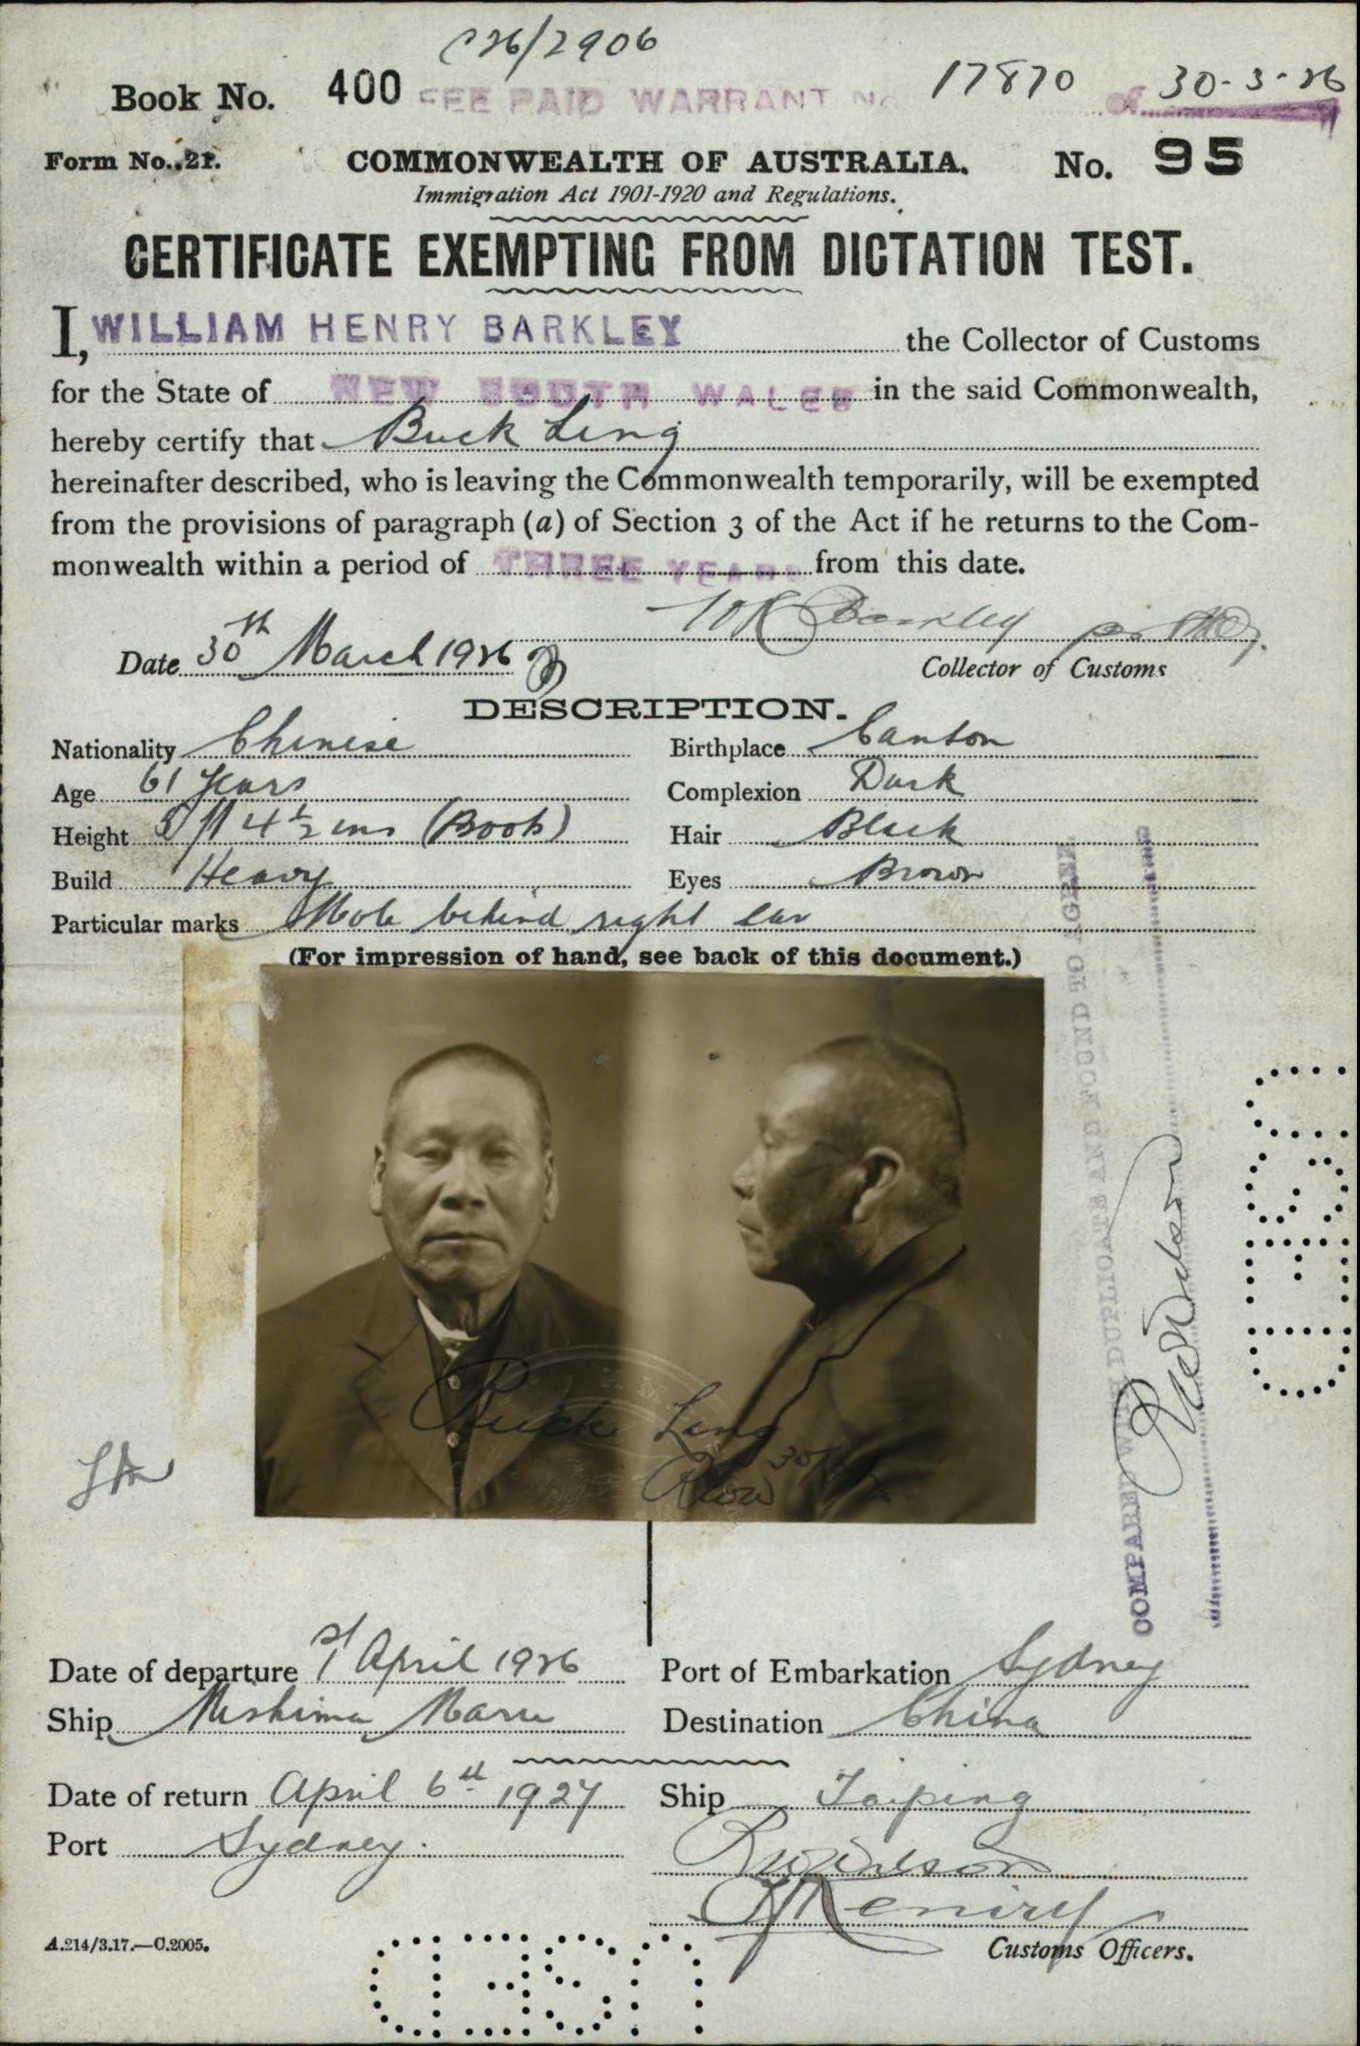 C26/2906
Book No. 400 FEE PAID WARRANT No 17870 of 30-3-26
Form No. 21. COMMONWEALTH OF AUSTRALIA. No. 95
Immigration Act 1901-1920 and Regulations.
CERTIFICATE EXEMPTING FROM DICTATION TEST.
I, WILLIAM HENRY BARKLEY the Collector of Customs
for the State of NEW SOUTH WALES in the said Commonwealth,
hereby certify that Buck Ling
hereinafter described, who is leaving the Commonwealth temporarily, will be exempted
from the provisions of paragraph (a) of Section 3 of the Act if he returns to the Com-
monwealth within a period of THREE YEARS from this date.
W H Barkley
Date 30th March 1926 Collector of Customs
DESCRIPTION.
Nationality Chinese Birthplace Canton
Age 61 years Complexion Dark
Height 5 ft 4½ ins (Boots) Hair Black
Build Heavy Eyes Brown
Particular marks Mole behind right ear
(For impression of hand, see back of this document.)
Buck Ling
COMPARED WITH DUPLICATE AND FOUND TO AGREE
Date of departure 1st April 1926 Port of Embarkation Sydney
Ship Mishima Maru Destination China
Date of return April 6th 1927 Ship Taiping
Port Sydney.
RW Wilson
Customs Officers.
A.214/3.17.—C.2005.
USED
USED